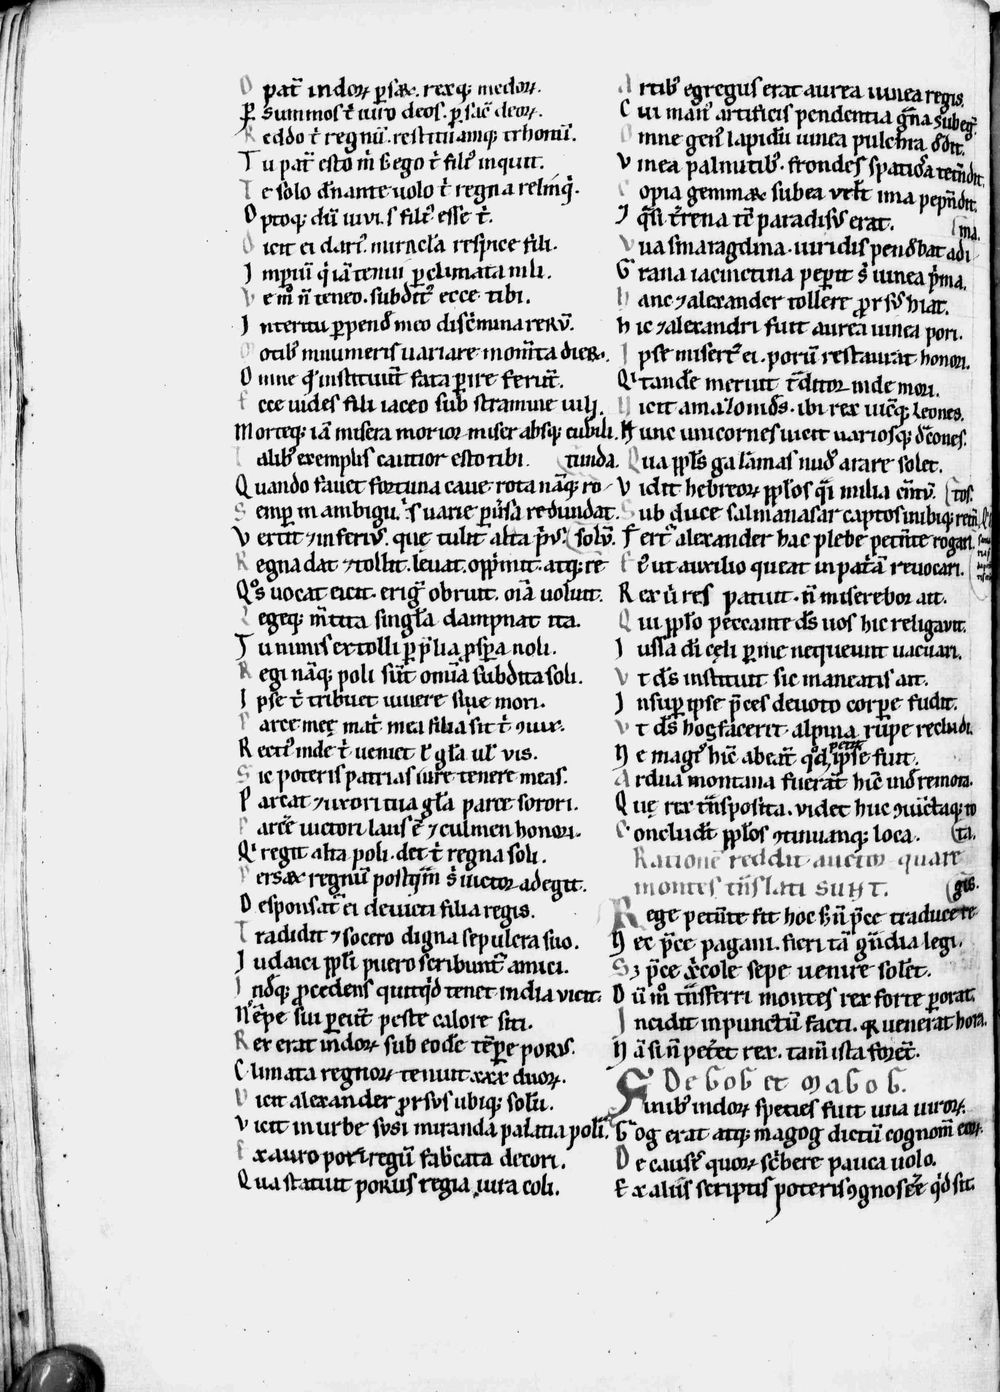 O pat̄ indoꝝ ꝑsaꝝ. rexq; medoꝝ.
Ꝑ summos t̄ iuro deos. ꝑ sac̄ deoꝝ.
Reddo t̄ regnū. restituamq; thronū.
Tu pat̄ esto m̄ & ego t̄ fili᷒ inquit.
Te solo dn̄ante uolo t̄ regna relinq̄.
Optoq; dū uiui. s fili᷒ esse t̄.
Dicit ei dari᷒. miracl̄a respice fili.
Impiū q̇ iā tenui ꝑ climata nili.
Vem̄ n̄ teneo. subdit᷒ ecce tibi.
Interitu ꝑpende meo discīmina rerū.
Motib᷒ innumeris uariare mom̄ta dieꝝ.
Omne qđ instituunt̄ fata ꝑire ferunt̄.
Ecce uides fili iaceo sub stramine uili.
Morteq; iā misera morior miser absq; cubili.
Talib᷒ exemplis cautior esto tibi. tunda.
Quando fauet fortuna caue. rota nāq; ro
Semꝑ in ambiguis. uarie pensa redundat.
Vertit & inferi᷒. quę tulit alta pri᷒. solū.
Regna dat & tollit. leuat. opprimit. atq; re
Qᵒs uocat eicit. erigit obruit. oīa uoluit.
Legeq; mentita singl̄a dampnat ita.
Tu nimis extolli ꝑ p̄lia ꝓspera noli.
Regi nāq; poli sūt omīa subdita soli.
Ipse t̄ tribuet uiuere siue mori.
Parce meę mat̄. mea filia sit t̄ ꝯiux.
Rect᷒ inde t̄ ueniet l̄ gl̄a ul̄ uis.
Sic poteris patrias iure tenere meas.
Parcat & uxori tua gl̄a parce sorori.
Parcē uictori laus ē & culmen honori.
Qⁱ regit alta poli. det t̄ regna soli.
Persaꝝ regnū postqm̄ s̄ uictor adegit.
Desponsat̄ ei deuicti filia regis.
Tradidit & socero digna sepulcra suo.
Iudaici ppl̄i puero scribunt̄ amici.
Indeq; ꝓcedens quicq̇d tenet india uicit.
Nēpe sui ꝑeunt̄ peste calore siti.
Rex erat indoꝝ sub eodē tēꝑe porus.
Climata regnoꝝ tenuit xxx duoꝝ.
Vicit alexander ꝓrsus ubiq; solū.
Vicit in urbe susi miranda palatia poli᷒.
Ex auro pori regū fab̄cata decori.
Qua statuit porus regia iura coli.
Artib᷒ egregi᷒ erat aurea uinea regis.
Cui man᷒ artificis pendentia gn̄a subeḡ.
Omne gen᷒ lapidū uinea pulchra dedit.
Vinea palmitib᷒. frondes spatiosa tetendit.
Copia gemmaꝝ subea uelut ima pependit.
I qᵃsi t̄rena t̄c paradisus erat. ma.
Vua smaragdina. uiridis pendebat adi
Grana iacinctina peperit s̄ uinea prima.
Hanc & alexander tollere ꝓrsus hiat.
Hic & alexandri fuit aurea uinea pori.
Ipse misert᷒ ei. porū restaurat honori.
Qⁱ tandē meruit t̄ditor inde mori.
Vicit amazonides. ibi rex uicitq; leones.
Hunc unicornes uicit uariosq; d̄cones.
Qua ppl̄s galamas nud᷒ arare solet.
Vidit hebreoꝝ ppl̄os qⁱ milia centū. tos.
Sub duce salmanasar captos inibiq; reten̄
Fert᷒ alexander hac plebe petente rogari.
Ee᷒ ut auxilio queat in pat̄ā reuocari.
Rex u̇ res patuit. n̄ miserebor ait.
Qui ppl̄o peccante d̄s uos hic religauit.
Iussa dī cęli ꝑ me nequeunt uacuari.
Vt d̄s instituit sic maneatis ait.
Insuꝑ ipse p̄ces deuoto corꝑe fudit.
Vt d̄s hos facerit alpina rupe recludi.
Ne mag᷒ hinc abeant qđ petit ipse fuit.
Ardua montana fuerant hinc inde remota.
Quę rex t̄nsposita. uidet huc ꝯuictaq; to
Concludit ppl̄os ꝯtinuanq; loca. ta.
Rationē reddit auctor quare
montes t̄nslati sunt. gis.
Rege petente fit hoc s; n̄ p̄ce traducere
Nec p̄ce pagani. fieri tam gn̄dia legi.
S; p̄ce xp̄icole sepe uenire solet.
Dū m̊ t̄nsferri montes rex forte ꝑorat.
Incidit in punctū facti. qᵒ uenerat hora.
Nā si n̄ petet rex. tam̄ ista foret̄.
De Gog et Magog.
Finib᷒ indoꝝ species fuit una uiroꝝ.
Gog erat atq; magog dictū cognom̄ eoꝝ.
De causis quoꝝ sc̄bere pauca uolo.
Ex aliis scriptis poteris ꝯgnoscere qđ sit.